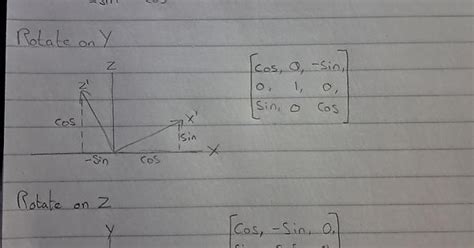 -sin cos
Rotate on Y
Z
Z'
cos
X'
sin
-Sin
cos
X
[Cos, 0, -Sin,
0, 1, 0,
Sin, 0 Cos]
Rotate on Z
Y
[Cos, -Sin, 0,